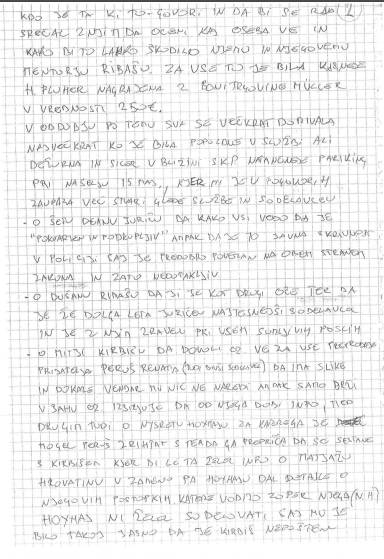 KDO JE TA KI TO GOVORI IN DA BI SE RAD 2
SREČAL Z NJIM DA OCENI KAJ OSEBA VE IN
KAKO BI TO LAHKO ŠKODILO NJEMU IN NJEGOVEMU
MENTORJU RIBAŠU. ZA VSE TO JE BILA KASNEJE
H. PLUHER NAGRAJENA Z BONI TRGOVINE MÜLLER
V VREDNOSTI 250€.
V OBDOBJU PO TEM SVA SE VEČKRAT DOBIVALA
NAJVEČKRAT KO JE BILA POPOLDNE V SLUŽBI ALI
DEŽURNA IN SICER V BLIŽINI SKP PARKING
PRI NASELJU 15 MAJ, KJER MI JE V POGOVORIH
ZAUPALA VEČ STVARI GLEDE SLUŽBE IN SODELAVCEV
- O ŠEFU DEANU JURIČU DA KAKO VSI VEDO DA JE
"POKVARJEN IN PODKUPLJIV" AMPAK DA JE TO JAVNA SKRIVNOST
V POLICIJI SAJ JE PREDOBRO POVEZAN NA OBEH STRANEH
ZAKONA IN ZATO NEDOTAKLJIV
- O DUŠANU RIBAŠU DA JI JE KOT DRUGI OČE TER DA
JE ŽE DOLGA LETA JURIČEV NAJTESNEJŠI SODELAVEC
IN JE Z NJIM ZRAVEN PRI VSEH SUMLJIVIH POSLIH
- O MITJI KIRBIŠU DA DOVOLI OZ VE ZA VSE
PRIJATELJA PERUŠ RENATA DA IMA SLIKE
IN DOKAZE VENDAR MU NIČ NE NAREDI AMPAK SAMO
V ŠAHU OZ IZSILJUJE DA OD NJEGA DOBI INFO, MED
DRUGIM TUDI O NYSRETU HOXHAJU ZA KATEREGA JE
MOGEL PERUŠ ZRIHTAT S TEM DA GA PREPRIČA DA SE SESTANE
S KIRBIŠEM KJER BI LE TA ŽELEL INFO O MATJAŽU
HROVATINU V ZAMENO PA HOXHAJU DAL DETAJLE O
NJEGOVIH POSTOPKIH KATERE VODIJO ZOPER NJEGA (N.H)
HOXHAJ NI ŽELEL SODELOVATI, SAJ MU JE
BILO TAKOJ JASNO DA JE KIRBIŠ NEPOŠTEN